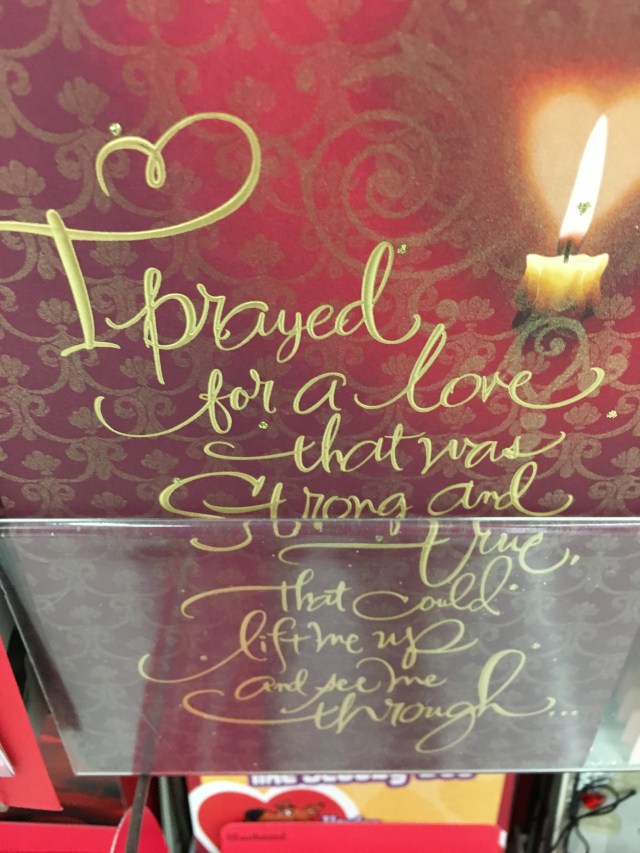 I prayed
for a love
that was
Strong and
true,
that could
lift me up
and see me
through...